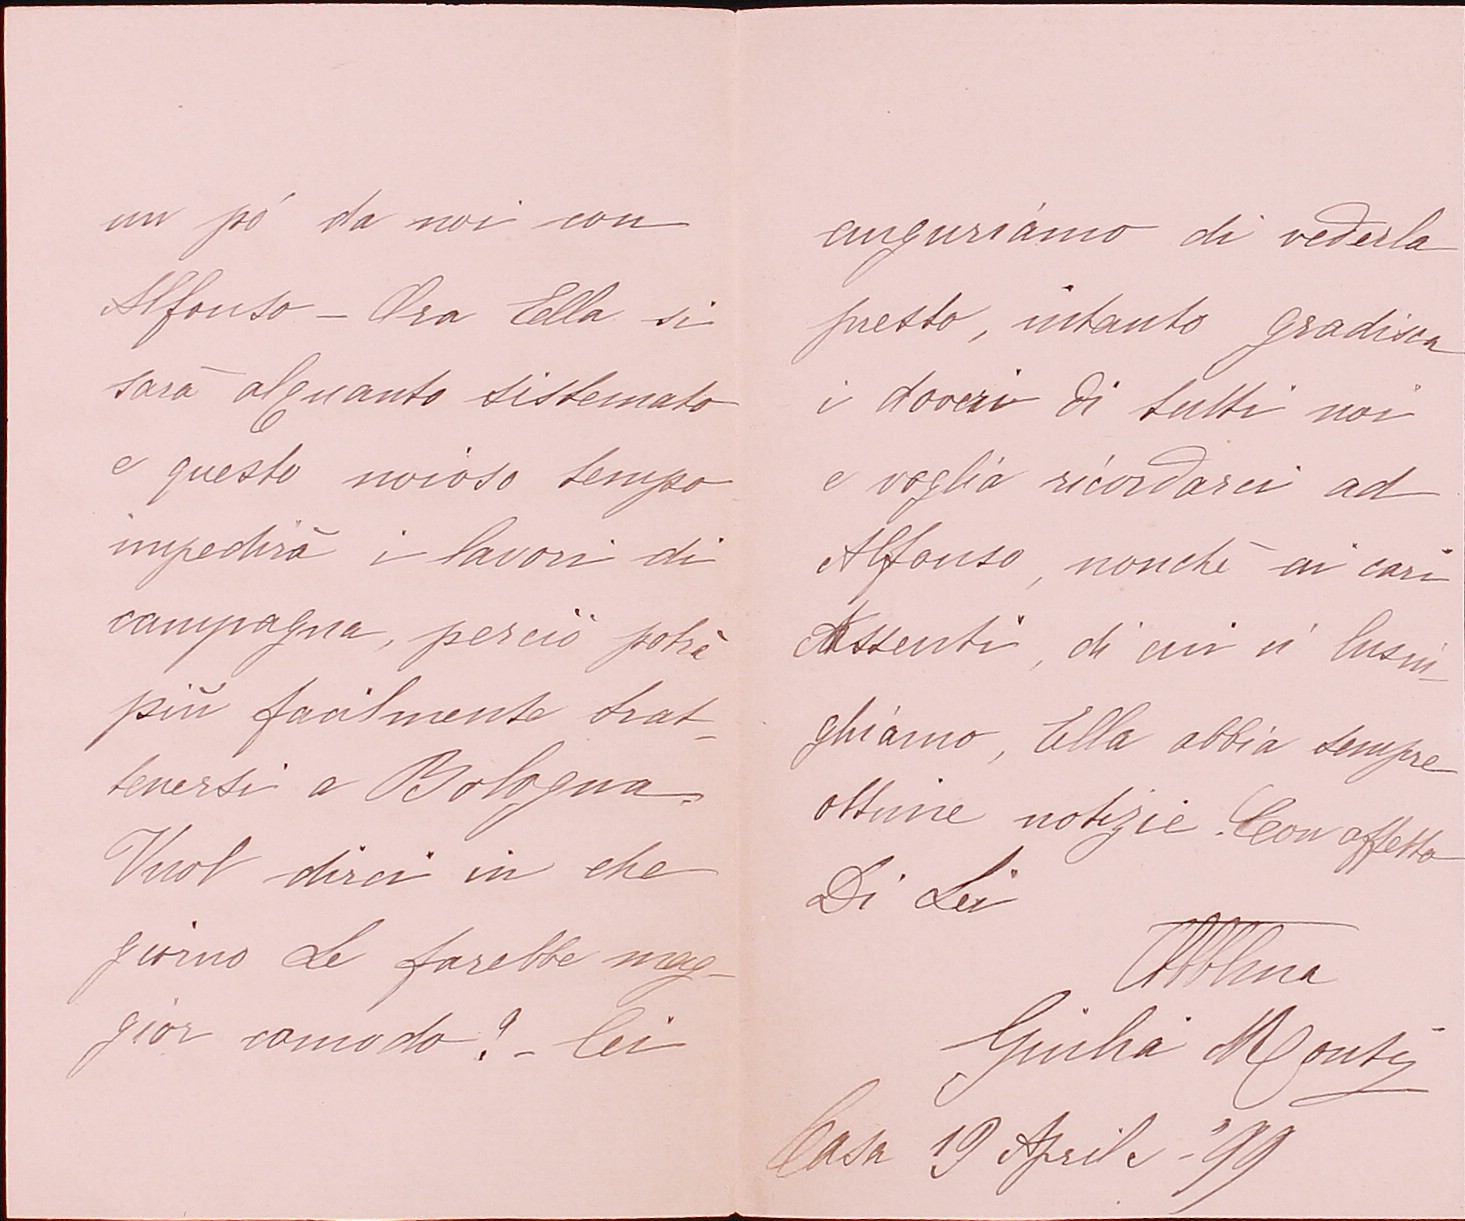 un pó da noi con
Alfonso – Ora Ella si
sarà alquanto sistemato
e questo noioso tempo
impedirà i lavori di
campagna, perciò potrà
più facilmente trat-
tenersi a Bologna.
Vuol dirci in che
giorno Le farebbe mag-
gior comodo? – Ci
auguriamo di vederla
presto, intanto gradisca
i doveri di tutti noi
e voglia ricordarci ad
Alfonso, nonchè ai cari
Assenti, di cui ci lusin-
ghiamo, Ella abbia sempre
ottime notizie. Con affetto
Di Lei
Obblma
Giulia Monti
Casa 19 Aprile – '99